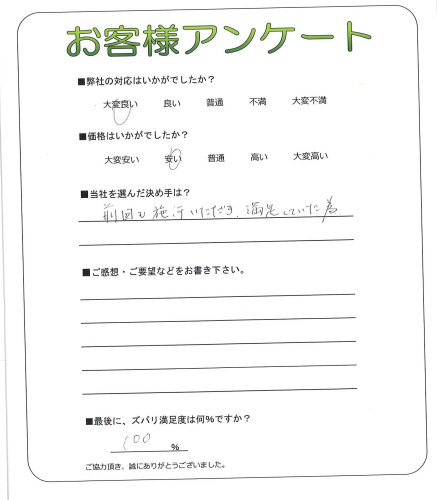 お客様アンケート
■弊社の対応はいかがでしたか？
大変良い 良い 普通 不満 大変不満
■価格はいかがでしたか？
大変安い 安い 普通 高い 大変高い
■当社を選んだ決め手は？
前回も施行いただき、満足していた為
■ご感想・ご要望などをお書き下さい。
■最後に、ズバリ満足度は何％ですか？
100 %
ご協力頂き、誠にありがとうございました。